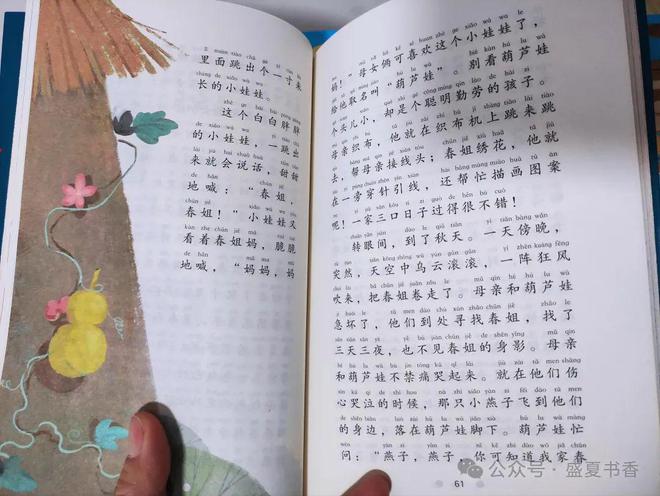 里面跳出个一寸来
长的小娃娃。
这个白白胖胖
的小娃娃，一跳出
来就会说话，甜甜
地喊：“春姐，
春姐！”小娃娃又
看着春姐妈，脆脆
地喊，“妈妈，妈
妈！”母女俩可喜欢这个小娃娃了，
给他取名叫“葫芦娃”。别看葫芦娃
个头儿小，却是个聪明勤劳的孩子。
母亲织布，他就在织布机上跳来跳
去，帮母亲接线头；春姐绣花，他就
在一旁穿针引线，还帮忙描画图案
呢！一家三口日子过得很不错！
转眼间，到了秋天。一天傍晚，
突然，天空中乌云滚滚，一阵狂风
吹来，把春姐卷走了。母亲和葫芦娃
急坏了，他们到处寻找春姐，找了
三天三夜，也不见春姐的身影。母亲
和葫芦娃不禁痛哭起来。就在他们伤
心哭泣的时候，那只小燕子飞到他们
的身边，落在葫芦娃脚下。葫芦娃忙
问：“燕子，燕子，你可知道我家春
61
公众号·盛夏书香